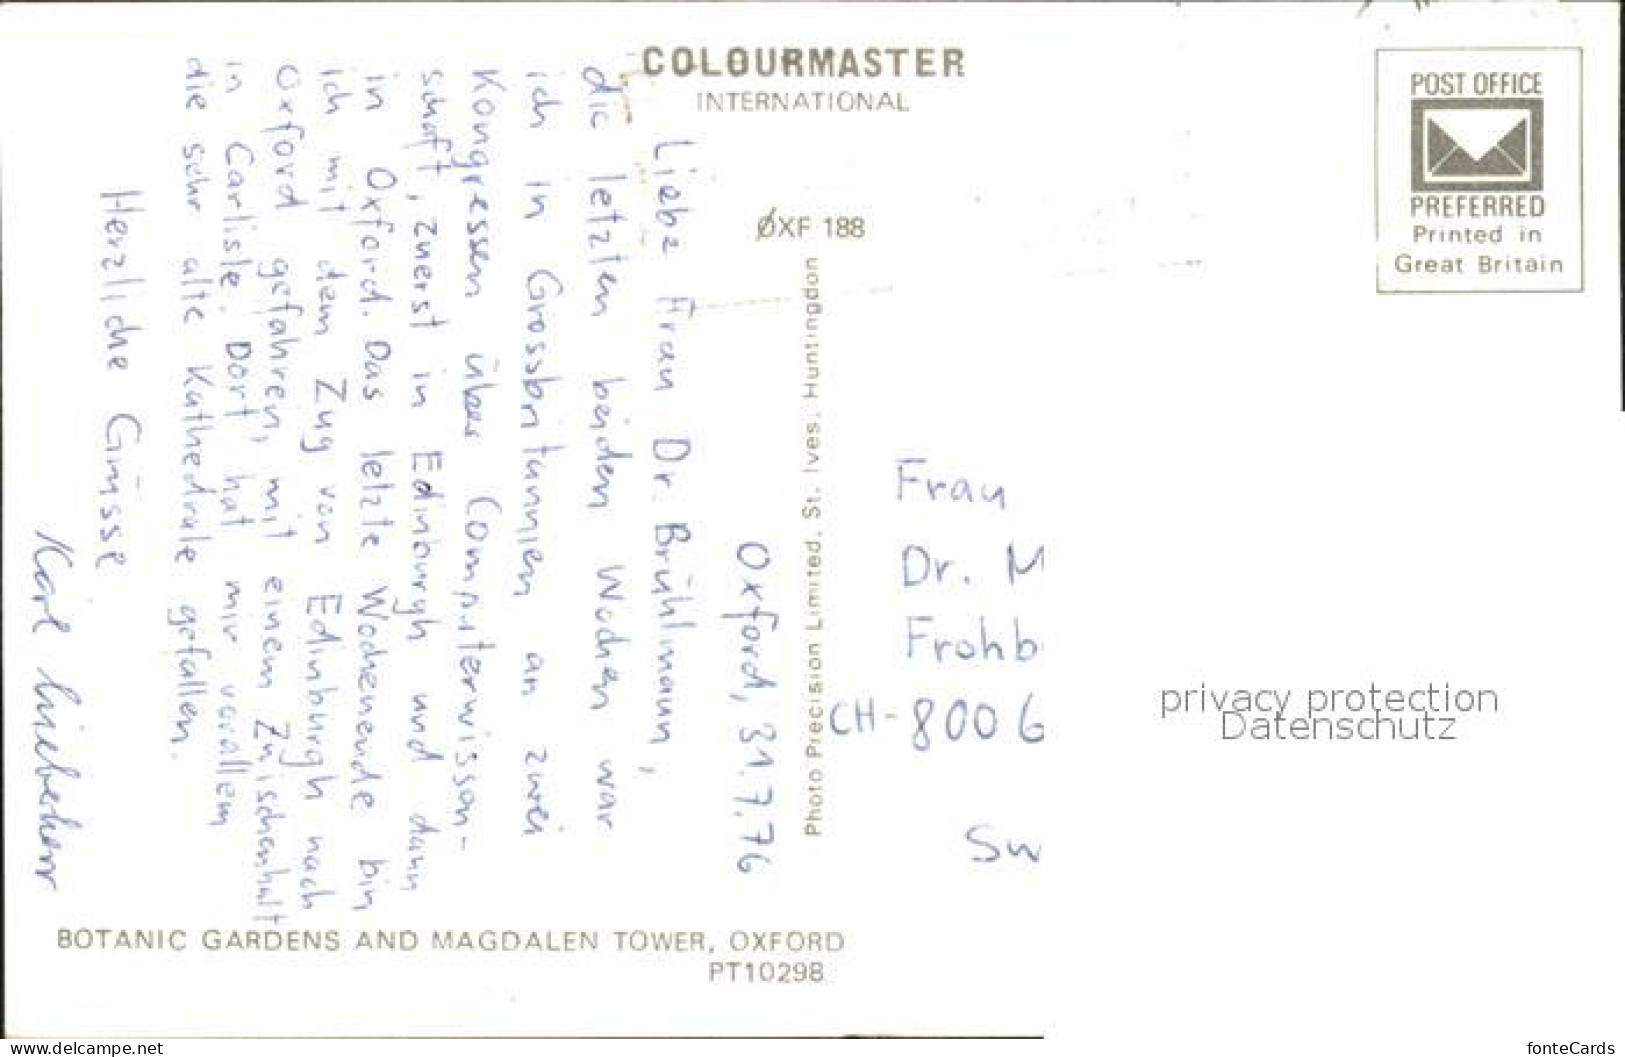 COLOURMASTER
INTERNATIONAL
POST OFFICE
PREFERRED
Printed in
Great Britain
ØXF 188
Photo Precision Limited. St. Ives. Huntingdon
Oxford, 31.7.76
Liebe Frau Dr. Brühlmann,
die letzten beiden Wochen war
ich in Grossbritannien an zwei
Kongressen über Computerwissen-
schaft, zuerst in Edinburgh und dann
in Oxford. Das letzte Wochenende bin
ich mit dem Zug von Edinburgh nach
Oxford gefahren, mit einem Zwischenhalt
in Carlisle. Dort hat mir vorallem
die sehr alte Kathedrale gefallen.
Herzliche Grüsse
Karl
Frau
Dr. M
Frohb
CH-8006
Sw
privacy protection
Datenschutz
BOTANIC GARDENS AND MAGDALEN TOWER, OXFORD
PT10298
www.delcampe.net
fonteCards